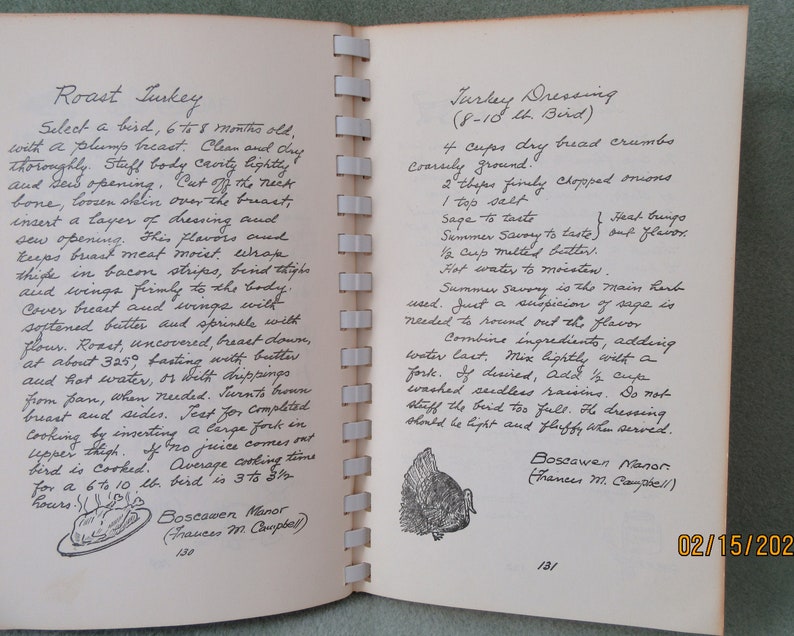 Roast Turkey
Select a bird, 6 to 8 months old,
with a plump breast. Clean and dry
thoroughly. Stuff body cavity lightly
and sew opening. Cut off the neck
bone, loosen skin over the breast,
insert a layer of dressing and
sew opening. This flavors and
keeps breast meat moist. Wrap
thighs in bacon strips, bind thighs
and wings firmly to the body.
Cover breast and wings with
softened butter and sprinkle with
flour. Roast, uncovered, breast down,
at about 325°, basting with butter
and hot water, or with drippings
from pan, when needed. Turn to brown
breast and sides. Test for completed
cooking by inserting a large fork in
upper thigh. If no juice comes out
bird is cooked. Average cooking time
for a 6 to 10 lb. bird is 3 to 3½
hours.
Boscawen Manor
(Frances M. Campbell)
130
Turkey Dressing
(8-10 lb. Bird)
4 cups dry bread crumbs
coarsely ground.
2 tbsps finely chopped onions
1 tsp salt
Sage to taste } Heat brings
Summer Savory to taste } out flavor.
½ cup melted butter.
Hot water to moisten.
Summer Savory is the main herb
used. Just a suspicion of sage is
needed to round out the flavor
Combine ingredients, adding
water last. Mix lightly with a
fork. If desired, add ½ cup
washed seedless raisins. Do not
stuff the bird too full. The dressing
should be light and fluffy when served.
Boscawen Manor.
(Frances M. Campbell)
131
02/15/202